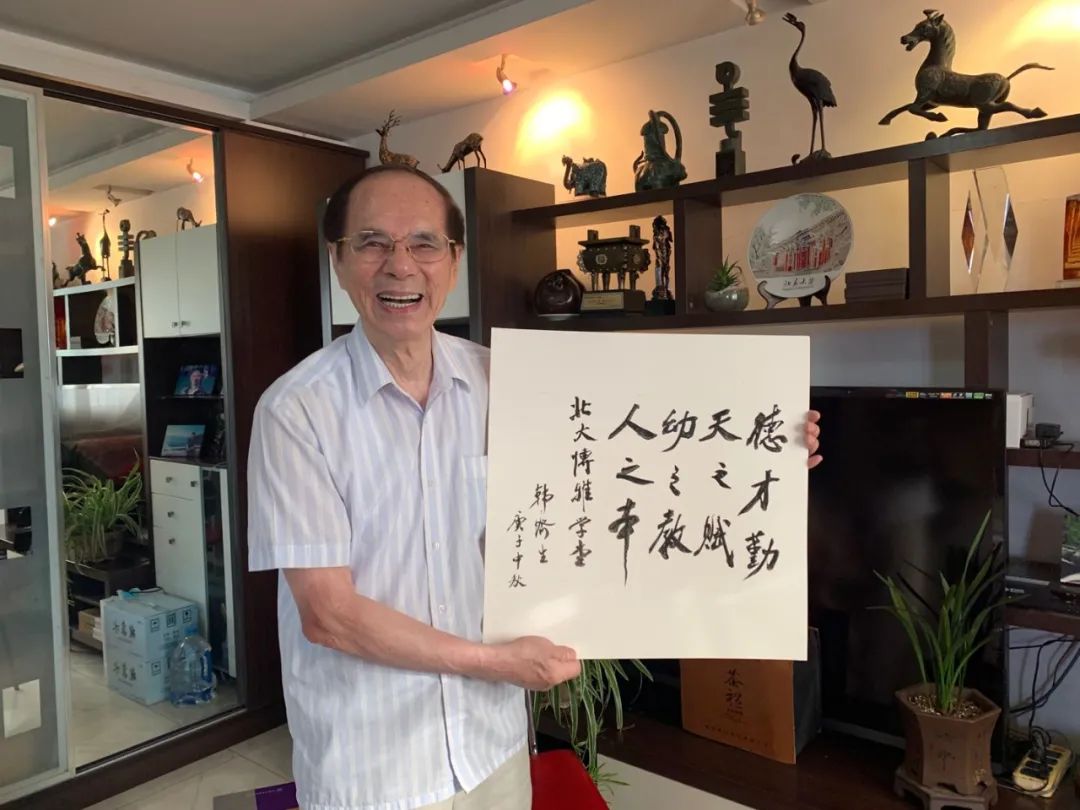 德才勤
天之赋
幼之教
人之本
北大博雅学堂
韩济生
庚子中秋
北京大学
茶